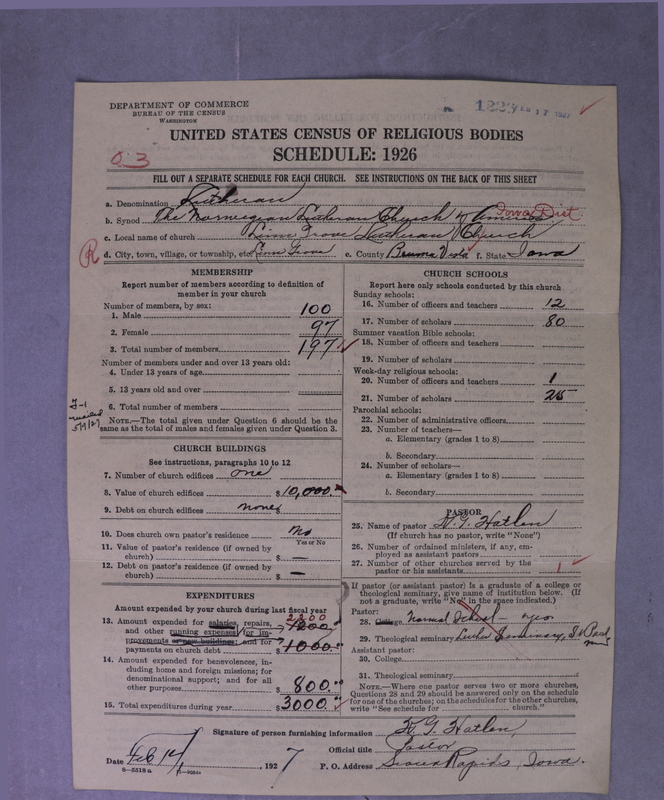 DEPARTMENT OF COMMERCE
BUREAU OF THE CENSUS
WASHINGTON
UNITED STATES CENSUS OF RELIGIOUS BODIES
SCHEDULE: 1926
FILL OUT A SEPARATE SCHEDULE FOR EACH CHURCH. SEE INSTRUCTIONS ON THE BACK OF THIS SHEET
a. Denomination Lutheran
b. Synod The Norwegian Lutheran Church of America Iowa Dist.
c. Local name of church Linn Grove Lutheran Church
R d. City, town, village, or township, etc. Linn Grove e. County Buena Vista f. State Iowa
MEMBERSHIP
Report number of members according to definition of
member in your church
Number of members, by sex:
1. Male 100
2. Female 97
3. Total number of members 197
Number of members under and over 13 years old:
4. Under 13 years of age
5. 13 years old and over
6. Total number of members
NOTE.—The total given under Question 6 should be the
same as the total of males and females given under Question 3.
5/9/27
CHURCH BUILDINGS
See instructions, paragraphs 10 to 12
7. Number of church edifices one
8. Value of church edifices $10,000.
9. Debt on church edifices none $
10. Does church own pastor's residence no
Yes or No
11. Value of pastor's residence (if owned by
church) $ —
12. Debt on pastor's residence (if owned by
church) $ —
EXPENDITURES
Amount expended by your church during last fiscal year
13. Amount expended for salaries, repairs, 2200
and other running expenses; for im-
provements or new buildings; and for
payments on church debt $1000.
14. Amount expended for benevolences, in-
cluding home and foreign missions; for
denominational support; and for all
other purposes $800.
15. Total expenditures during year $3000.
CHURCH SCHOOLS
Report here only schools conducted by this church
Sunday schools:
16. Number of officers and teachers 12
17. Number of scholars 80
Summer vacation Bible schools:
18. Number of officers and teachers
19. Number of scholars
Week-day religious schools:
20. Number of officers and teachers 1
21. Number of scholars 25
Parochial schools:
22. Number of administrative officers
23. Number of teachers—
a. Elementary (grades 1 to 8)
b. Secondary
24. Number of scholars—
a. Elementary (grades 1 to 8)
b. Secondary
PASTOR
25. Name of pastor H. G. Hatlen
(If church has no pastor, write "None")
26. Number of ordained ministers, if any, em-
ployed as assistant pastors
27. Number of other churches served by the
pastor or his assistants 1
If pastor (or assistant pastor) is a graduate of a college or
theological seminary, give name of institution below. (If
not a graduate, write "No" in the space indicated.)
Pastor:
28. College Normal School — yes
29. Theological seminary Luther Seminary, St Paul
Minn
Assistant pastor:
30. College
31. Theological seminary
NOTE.—Where one pastor serves two or more churches,
Questions 28 and 29 should be answered only on the schedule
for one of the churches; on the schedules for the other churches,
write "See schedule for church."
Signature of person furnishing information H. G. Hatlen,
Official title Pastor
Date Feb 14, 1927 P. O. Address Sioux Rapids, Iowa.
8—5518a